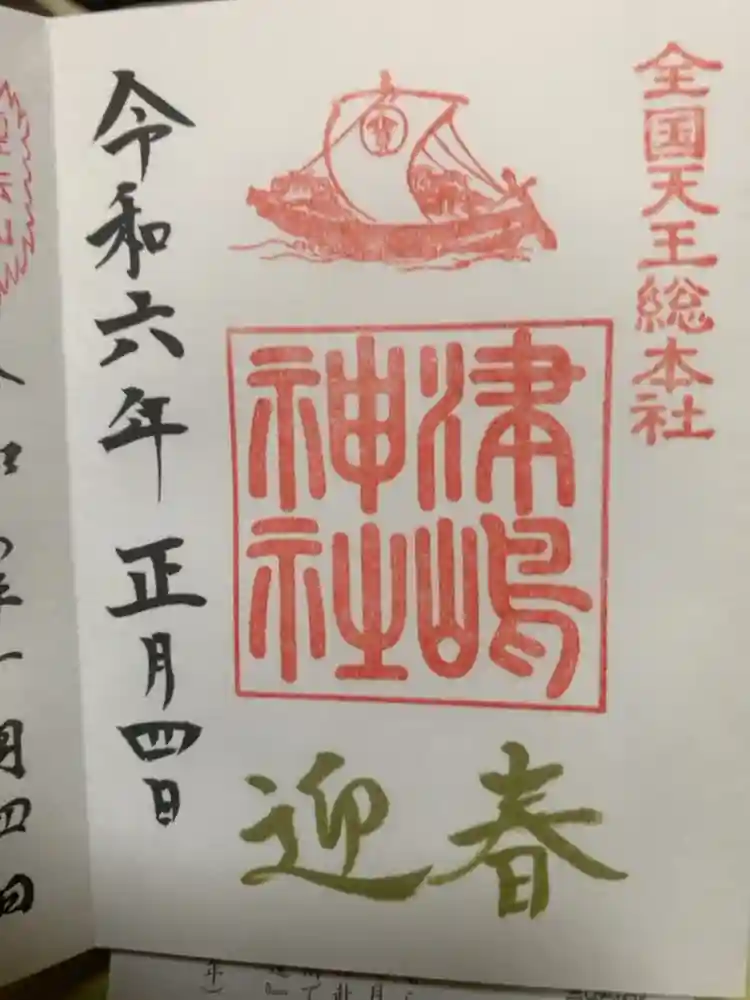 全国天王総本社
寳
津嶋
神社
迎春
令和六年 正月四日
月四日